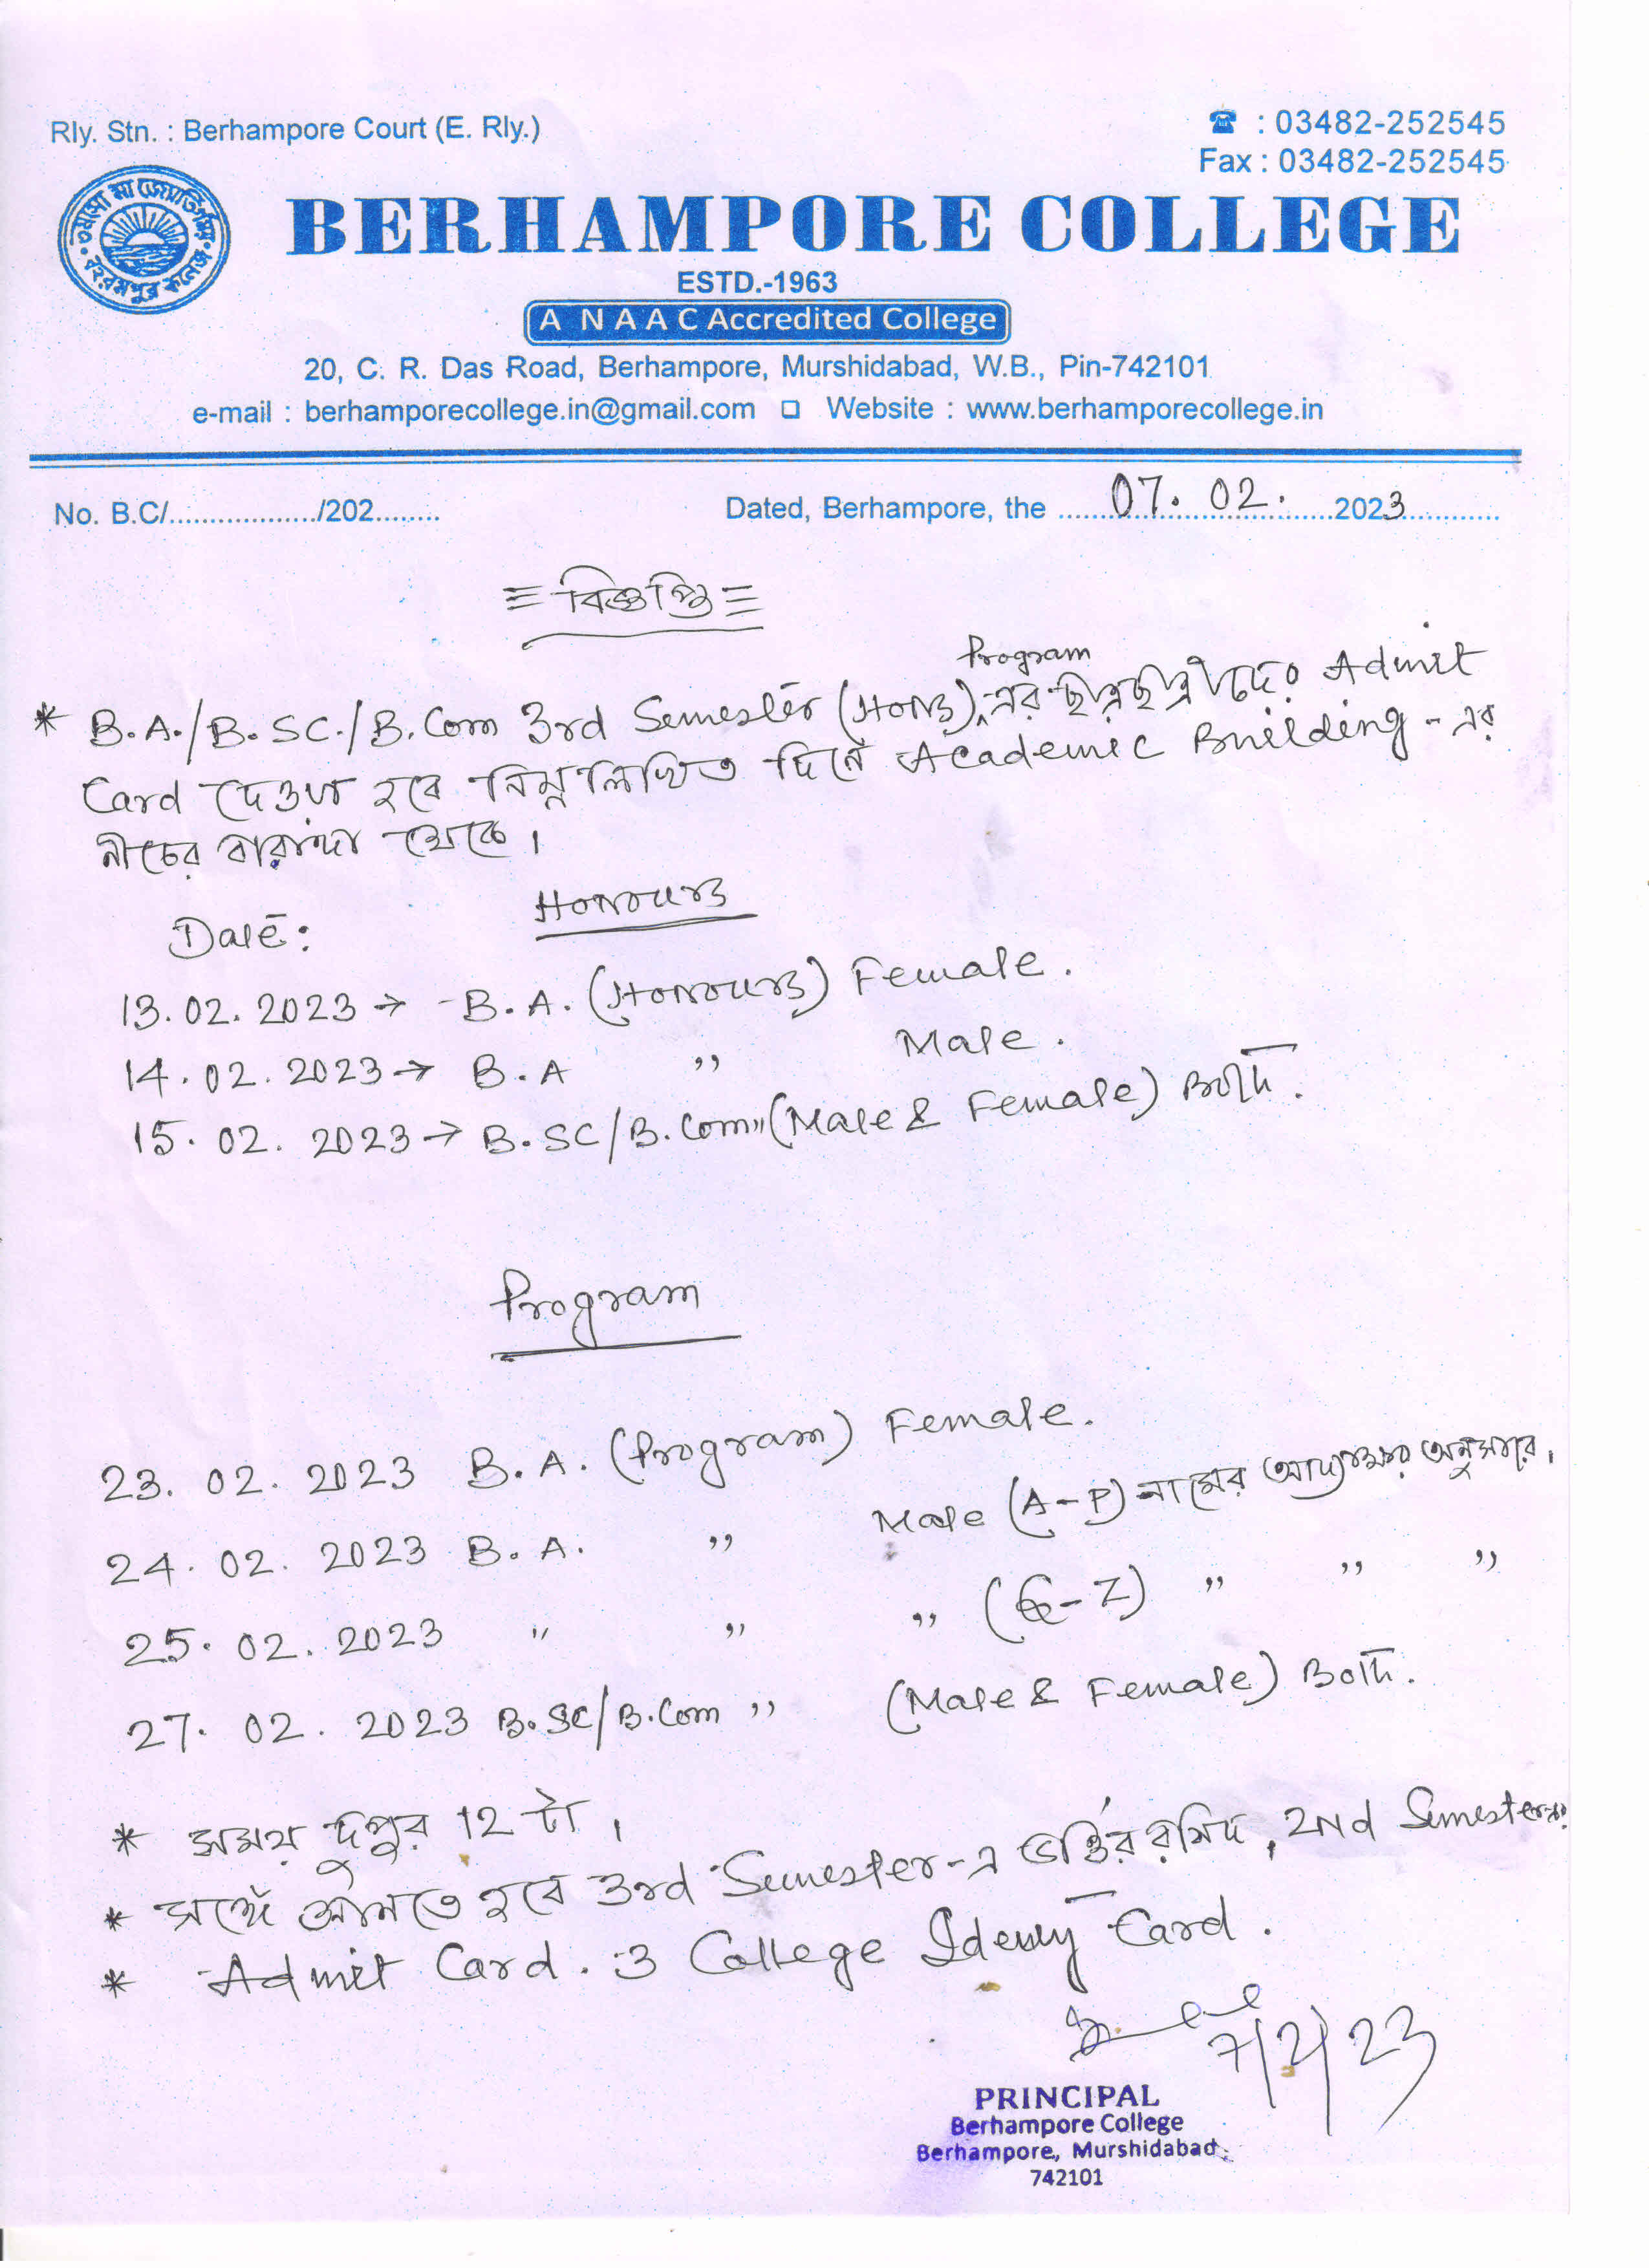 Rly. Stn. : Berhampore Court (E. Rly.)
☎ : 03482-252545
Fax : 03482-252545
তমসো মা জ্যোতির্গময়
বহরমপুর কলেজ
BERHAMPORE COLLEGE
ESTD.-1963
A NAAC Accredited College
20, C. R. Das Road, Berhampore, Murshidabad, W.B., Pin-742101
e-mail : berhamporecollege.in@gmail.com □ Website : www.berhamporecollege.in
No. B.C/.................../202........
Dated, Berhampore, the ......07. 02. ......2023............
≡ বিজ্ঞপ্তি ≡
Program
* B.A./B.SC./B.Com 3rd Semester (Hons), এর ছাত্রছাত্রীদের Admit
Card দেওয়া হবে নিম্নলিখিত দিনে Academic Building - এর
নীচের বারান্দা থেকে।
Honours
Date:
13.02.2023 → B.A. (Honours) Female.
14.02.2023 → B.A " Male.
15.02.2023 → B.SC/B.Com " (Male & Female) Both.
Program
23.02.2023 B.A. (Program) Female.
24.02.2023 B.A. " Male (A-P) নামের আদ্যাক্ষর অনুসারে।
25.02.2023 " " " (Q-Z) " " "
27.02.2023 B.SC/B.Com " (Male & Female) Both.
* সময় দুপুর 12 টা।
* সঙ্গে আনতে হবে 3rd Semester-এ ভর্ত্তির রসিদ, 2nd Semester এর
* Admit Card. ও College Identy Card.
7/2/23
PRINCIPAL
Berhampore College
Berhampore, Murshidabad
742101